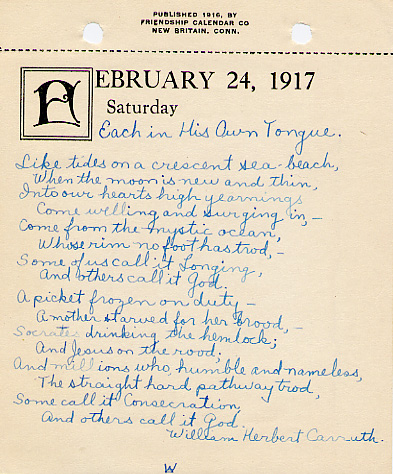 PUBLISHED 1916, BY
FRIENDSHIP CALENDAR CO
NEW BRITAIN, CONN.
FEBRUARY 24, 1917
Saturday
Each in His Own Tongue.
Like tides on a crescent sea-beach,
When the moon is new and thin,
Into our hearts high yearnings
Come welling and surging in, –
Come from the mystic ocean,
Whose rim no foot has trod, –
Some of us call it Longing,
And others call it God.
A picket frozen on duty –
A mother starved for her brood, –
Socrates drinking the hemlock;
And Jesus on the rood;
And millions who, humble and nameless,
The straight hard pathway trod,
Some call it Consecration,
And others call it God.
William Herbert Carruth.
W